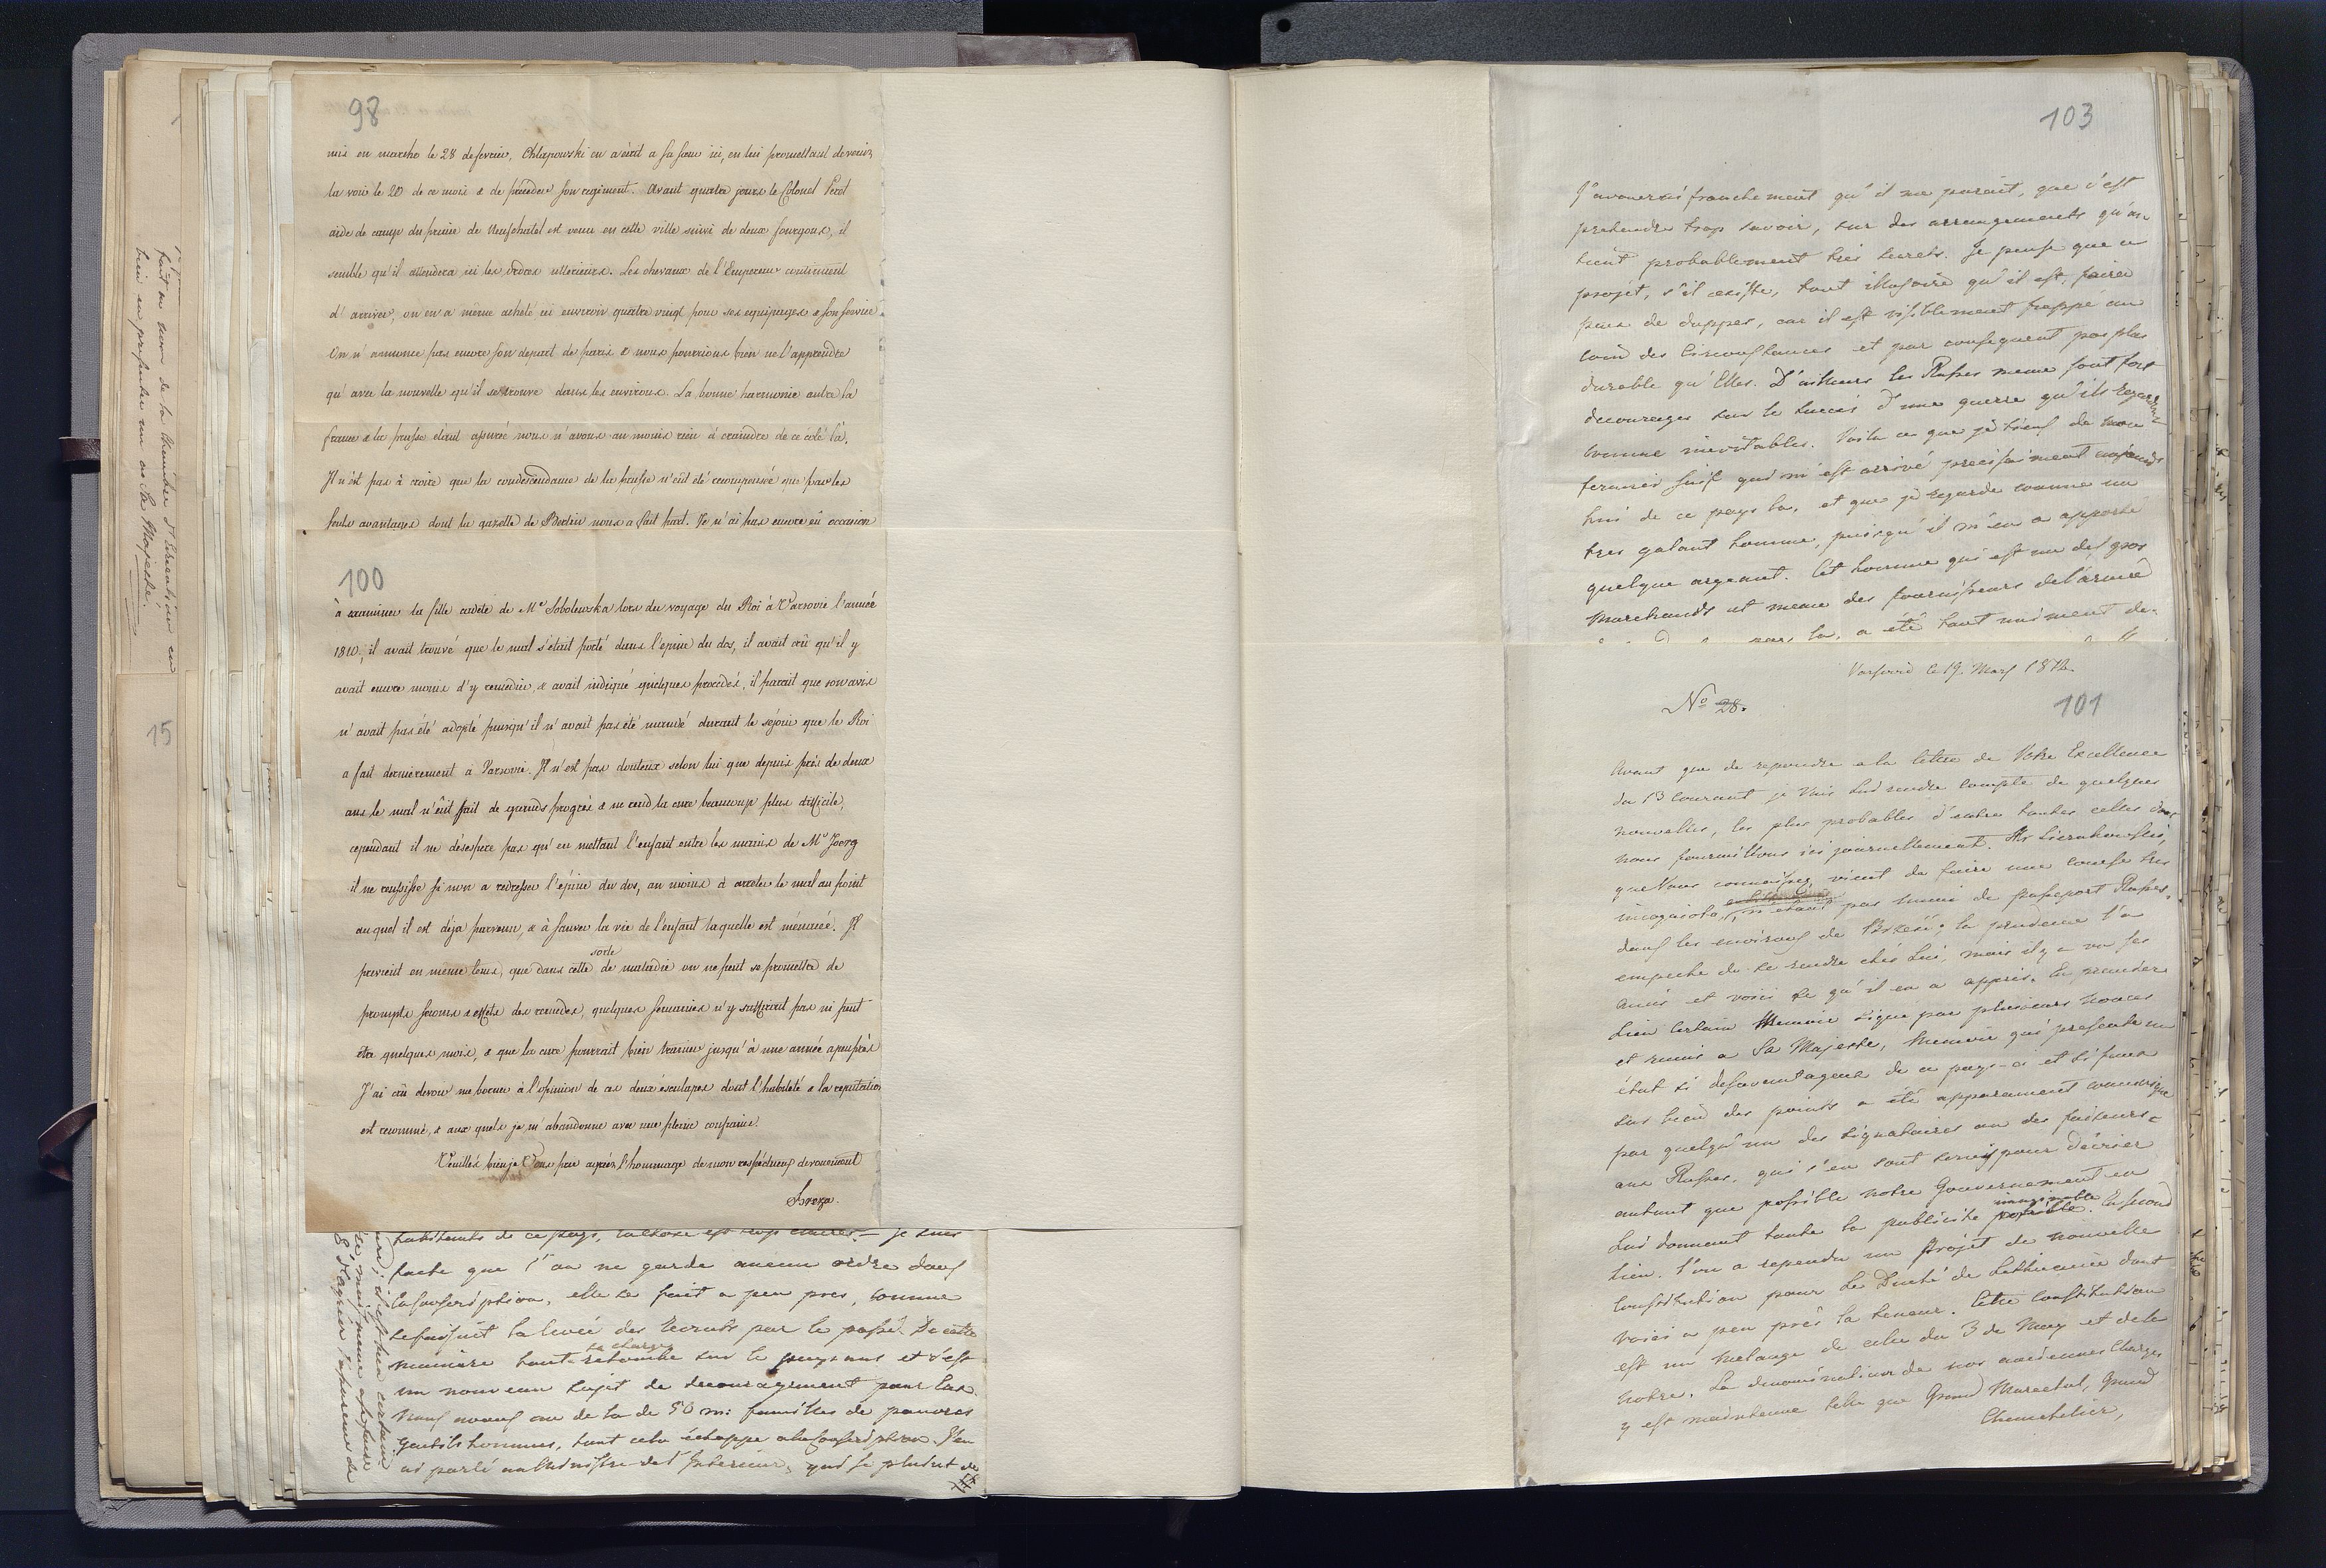 98
mis en marche le 28 de fevrier, Chlapowski en a écrit a sa sœur ici, en lui promettant de venir
la voir le 20 de ce mois & de préceder son regiment. Avant quatre jours le Colonel
aide de camp du prince de Neufchatel est venu en cette ville suivi de deux fourgons, il
semble qu'il attendera ici les ordres ulterieurs. Les chevaux de l'Empereur continuent
d'arriver, on en a même acheté ici environ quatre vingt pour ses equipages & son service.
On n'annonce pas encore son depart de paris & nous pourrions bien ne l'apprendre
qu'avec la nouvelle qu'il se trouve dans les environs. La bonne harmonie entre la
france & la prusse etant assurée nous n'avons au moins rien à craindre de ce coté là.
Il n'est pas à croire que la condescendance de la prusse n'eut été recompensée que par les
seuls avantages dont la gazette de Berlin nous a fait part. Je n'ai pas encore eû occasion
100
à examiner la fille cadete de Me Sobolewska lors du voyage du Roi à Varsovie l'année
1810, il avait trouvé que le mal s'etait porté dans l'epine du dos, il avait crû qu'il y
avait encore moyen d'y remedier, & avait indiqué quelques procedés, il parait que son avis
n'avait pas été adopté puisqu'il n'avait pas été mandé durant le séjour que le Roi
a fait dernierement à Varsovie. Il n'est pas douteux selon lui que depuis près de deux
ans le mal n'eût fait de grands progrès & ne rend la cure beaucoup plus difficile,
cependant il ne désespere pas qu'en mettant l'enfant entre les mains de Mr Joerg
il ne reussisse si non a redresser l'épine du dos, au moins à arreter le mal au point
au quel il est déja parvenu, & à sauver la vie de l'enfant laquelle est ménacée. Il
sorte
previent en meme tems, que dans cette de maladie on ne peut se promettre de
prompts secours & effets des remedes, quelques semaines n'y suffirait pas ni peut
etre quelques mois, & que la cure pourrait bien trainer jusqu'à une année apeuprès
J'ai crû devoir me borner à l'opinion de ces deux ésculapes dont l'habileté & la reputation
est reconnue, & aux quels je m'abandonne avec une pleine confiance.
Veuillés bien je Vous prie agréer l'hommage de mon respectueux devouement
Breza.
habitants de ce pays, la chose est trop claire. – je suis
faché que l'on ne garde aucun ordre dans
la conscription, elle se fait a peu pres, comme
se faisait la levée des recruts par le passé. De cette
la charge
maniere tout retombe sur le paysans et c'est
un nouveau sujet de decouragement pour eux.
Nous avons au de la de 50 m: familles de pauvres
gentils hommes, tout cela échappe a la conscription. J'en
ai parlé au Ministre de l'Interieur, qui se plaint de
fait au nom de la Chambre d'
bien en presenter un en Sa Majesté.
15
103
J'avouerais franchement qu'il me parait, que c'est
pretendre trop savoir, sur des arrangements qu'on
tient probablement tres secrets. Je pense que ce
projet, s'il existe, tout illusoire qu'il est, faira
peu de duppes, car il est visiblement frappé au
coin des Circonstances et par consequent pas plus
durable qu'Elles. D'ailleurs les Russes meme sont fort
decouragés sur le succés d'une guerre qu'ils regardent
comme inevitables. Voila ce que je tiens de mon
fermier juif qui m'est arrivé precisement aujourd'
hui de ce pays la, et que je regarde comme un
tres galant homme, puisqu'il m'en a apporté
quelque argeant. Cet homme qui est un des gros
marchands et meme des fournisseurs de l'armée
la, a été tout uniment de
Varsovie le 19. Mars 1812.
No 28.
101
Avant que de repondre a la lettre de Votre Excellence
du 13 Courant je Vais Lui rendre Compte de quelques
nouvelles, les plus probables d'entre toutes celles dont
nous fourmillons ici journellement. Mr Sierakowski,
que Vous connaissez vient de faire une course tres
incognito, n'étant pas muni de passeport Russes,
dans les environs de ; la prudence l'a
empeché de se rendre chés Lui, mais il y a vu ses
amis et voici ce qu'il en a appris. En premier
Lieu Certain Memoire signé par plusieurs nonces
et remis a Sa Majesté, Memoire qui presente un
état si desavantageux de ce pays-ci et si faux
sur bien des points a été apparament communiqué
par quelqu'un des signataires ou des faiseurs
aux Russes, qui s'en sont servis pour décrier
autant que possible notre Gouvernement en
imaginable
Lui donnant toute la publicité possible. En second
Lieu. L'on a repandu un Projet de nouvelle
Constitution pour Le Duché de Lithuanie dont
voici a peu près la teneur. Cette Constitution
est un melange de celle du 3 de May et de la
notre. La denomination de nos anciennes Charges
y est maintenue telle que Grand Marechal, Grand
Chancelier,